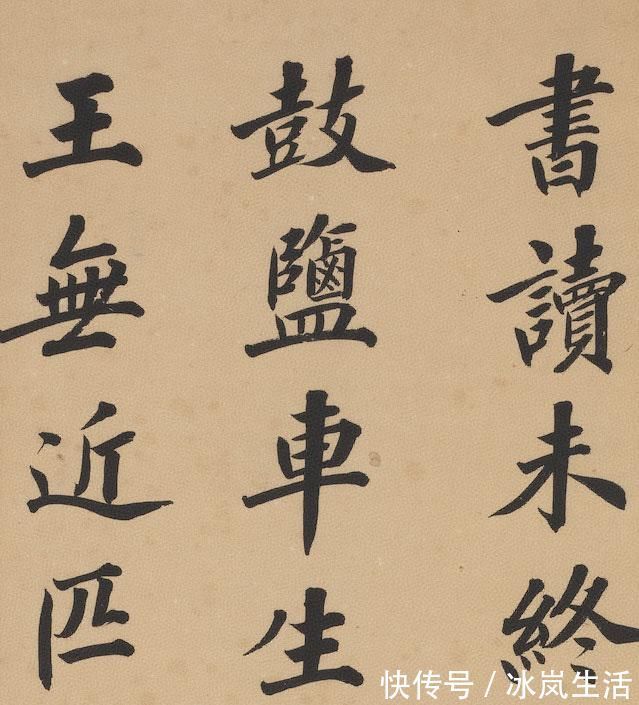 書讀未終
鼓鹽車生
王無近匹
快传号 / 冰岚生活